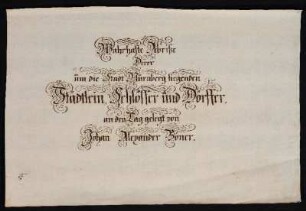 Wahrhaffte Abriße
Derer
um die Stadt Nürnberg liegenden
Städtlein, Schlösser und Dörffer,
an den Tag gelegt von
Johan Alexander Böner.